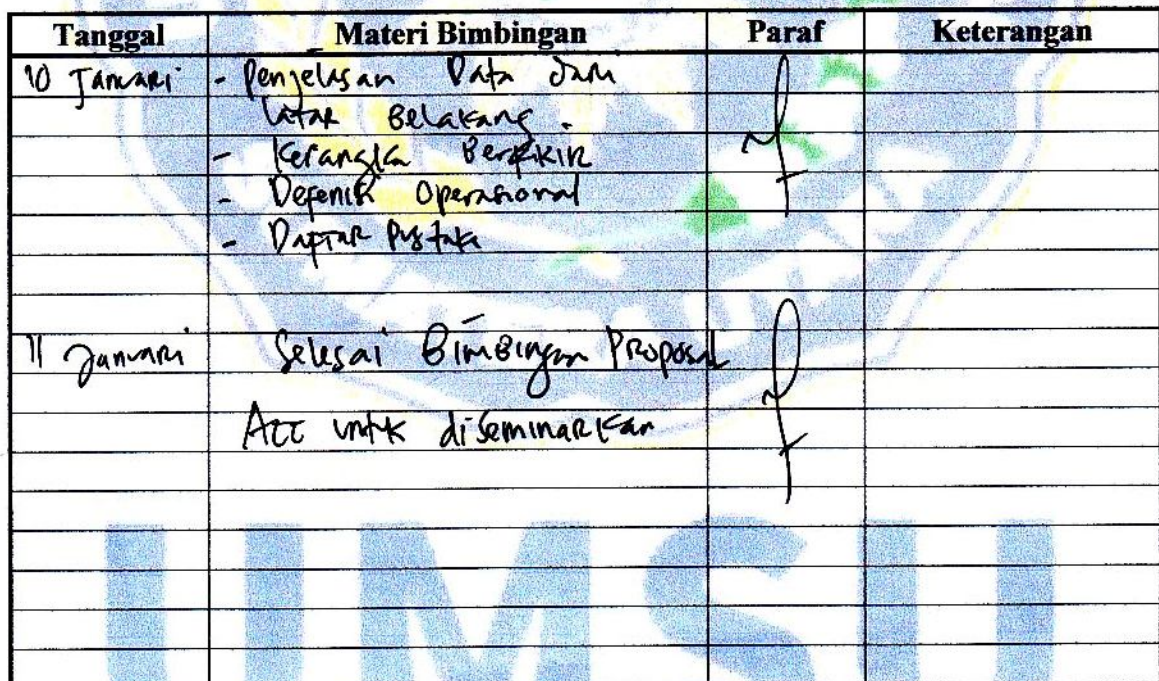 Tanggal Materi Bimbingan Paraf Keterangan
10 Januari - Penjelasan Data dari
latar Belakang.
- Kerangka Berfikir
- Defenisi Operasional
- Daftar Pustaka
11 Januari Selesai Bimbingan Proposal
Acc untuk diseminarkan
UMSU